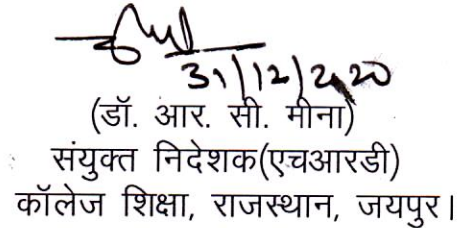 31/12/2020
(डॉ. आर. सी. मीना)
संयुक्त निदेशक(एचआरडी)
कॉलेज शिक्षा, राजस्थान, जयपुर।